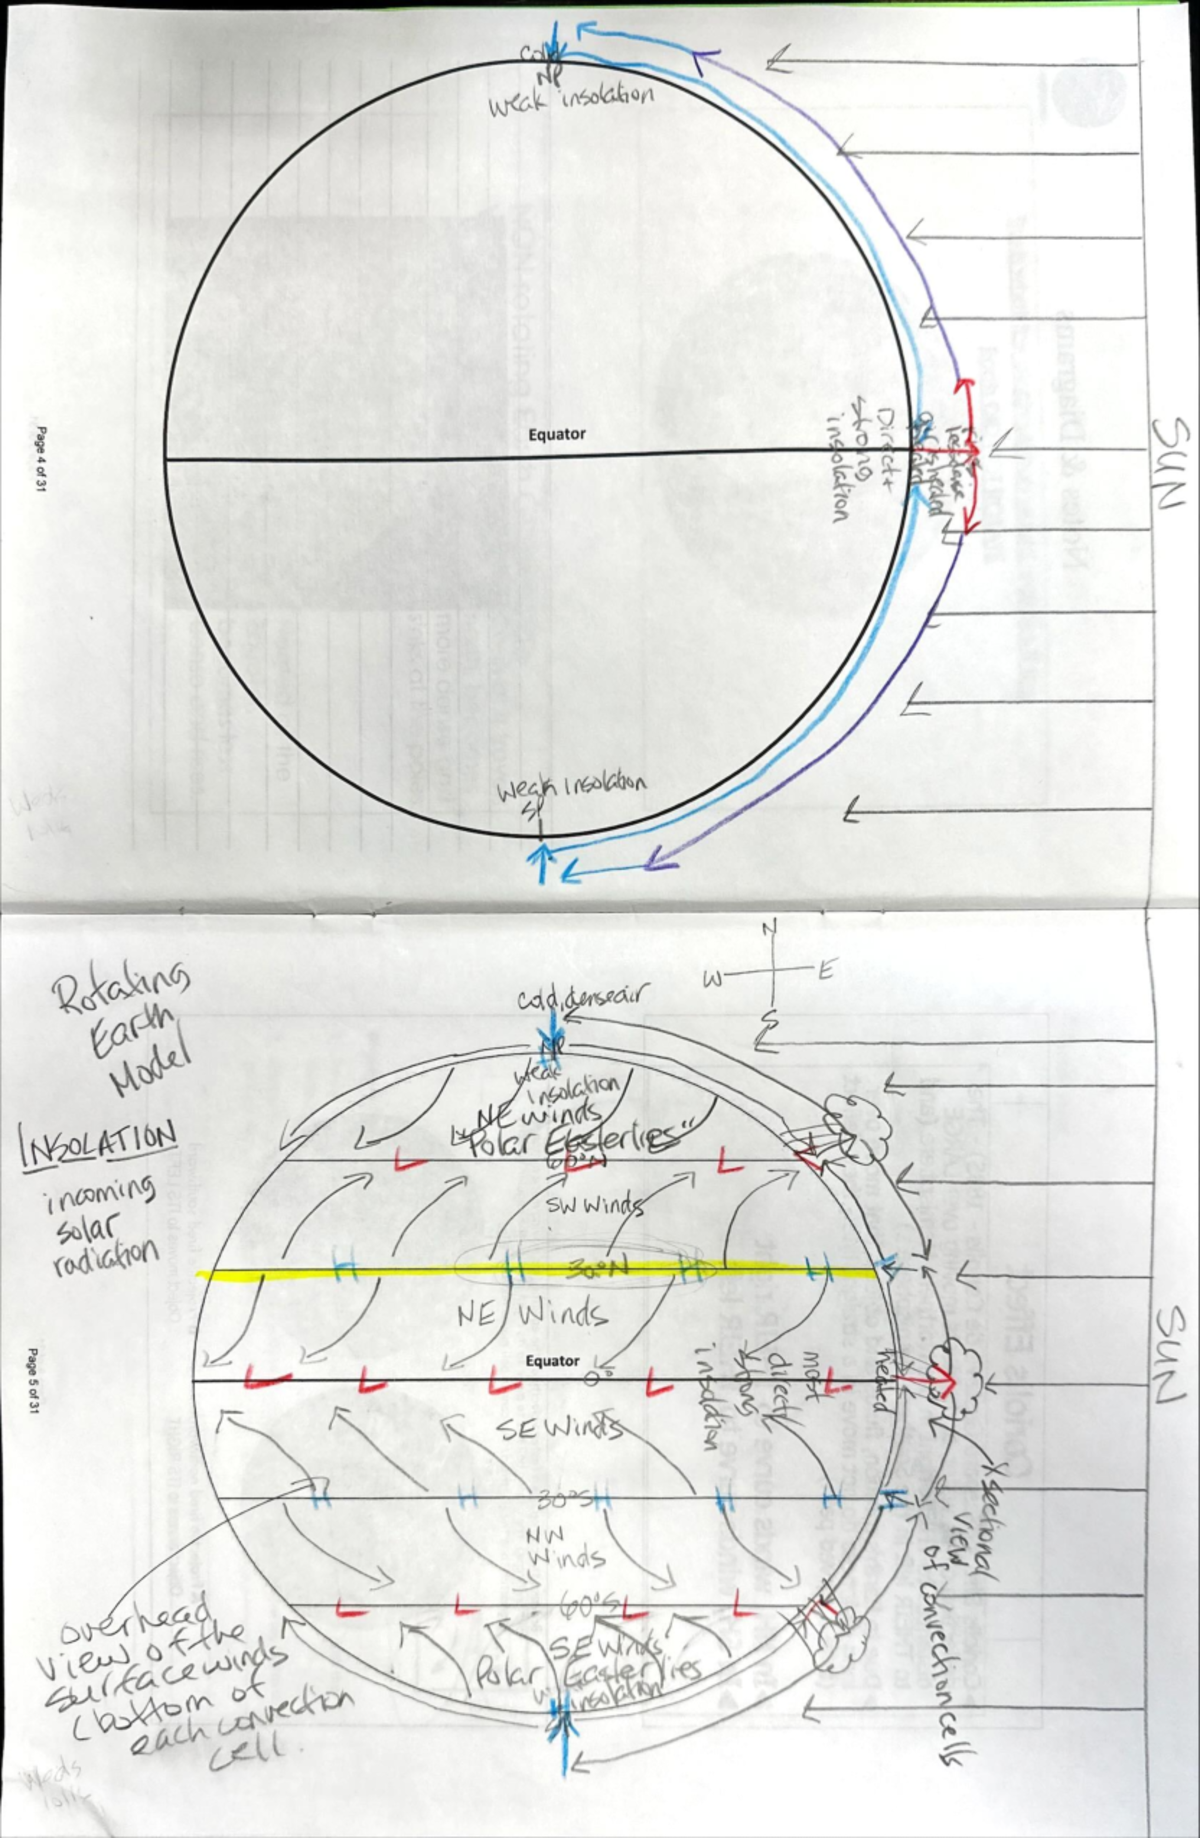 cold
NP
weak insolation
SUN
Equator
Direct +
strong
insolation
air is heated
rises
less dense
weak insolation
SP
Page 4 of 31
Rotating
Earth
Model
INSOLATION
incoming
solar
radiation
N
W
E
S
cold, dense air
NP
weak
insolation
NE winds
"Polar Easterlies"
60°N
L
L
L
SW winds
H
H
30°N
H
H
NE Winds
Equator
0°
L
L
L
L
L
most
direct
strong
insolation
heated
SUN
SE Winds
H
H
30°S
H
H
H
H
NW
Winds
L
L
60°S
L
L
SE Winds
Polar Easterlies
insolation
X sectional
view
of convection cells
overhead
view of the
surface winds
(bottom of
each convection
cell.
Page 5 of 31
Weds